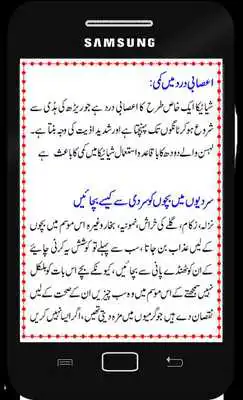 SAMSUNG
اعصابی درد میں کمی:
شیاٹیکا ایک خاص طرح کا اعصابی درد ہے جو ریڑھ کی ہڈی سے
شروع ہو کر ٹانگوں تک پہنچتا ہے اور شدید اذیت کی وجہ بنتا ہے۔
لہسن والے دودھ کا باقاعدہ استعمال شیاٹیکا میں کمی کا باعث ہے
سردیوں میں بچوں کو سردی سے کیسے بچائیں
نزلہ، زکام، گلے کی خراش، نمونیہ، بخار وغیرہ اس موسم میں بچوں
کے لیں عذاب بن جاتا، سب سے پہلے تو کوشش یہ کرنی چاہیے
کے ان کو ٹھنڈے پانی سے بچائیں، کیونکے بچے اس بات کو بلکل
نہیں سمجھتے کے اس موسم میں وہ سب چیزیں ان کے صحت کے لیں
نقصان دے ہیں جو گرمیوں میں مزہ دیتی تھیں، اگر ایسا نہیں کریں